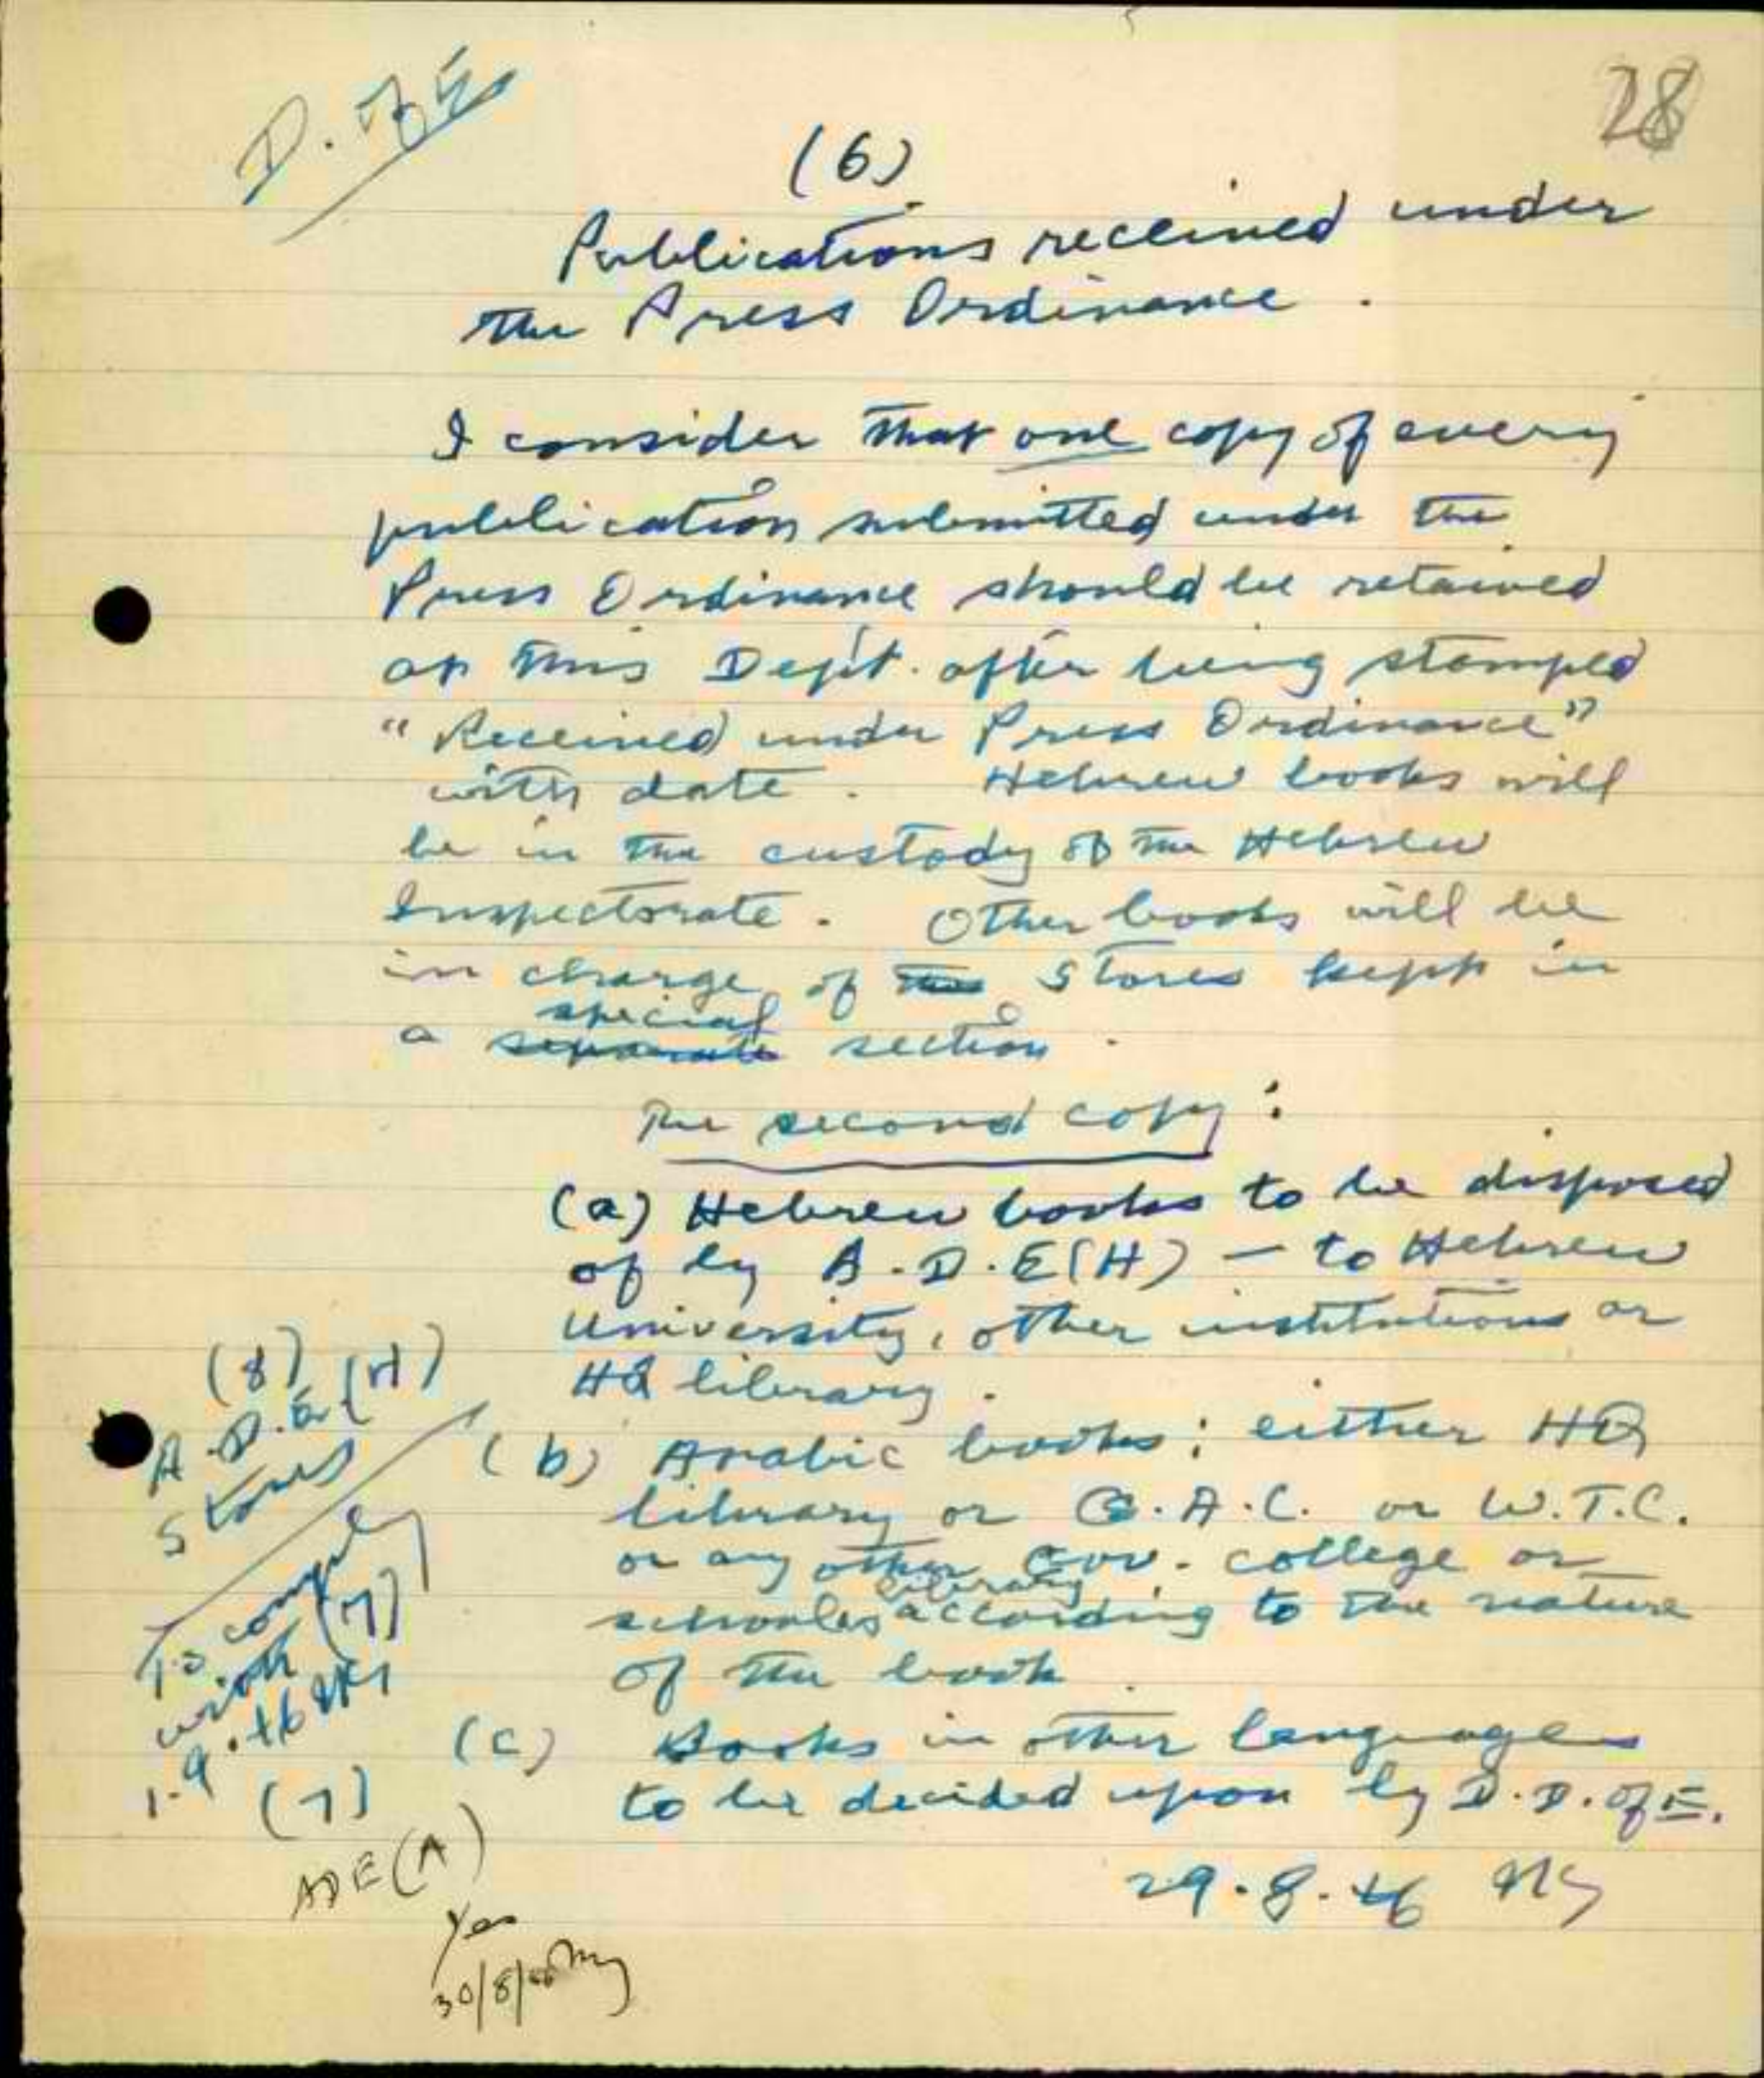 28
D. of E.
(6)
Publications received under
the Press Ordinance.
I consider that one copy of every
publication submitted under the
Press Ordinance should be retained
at this Dept. after being stamped
"Received under Press Ordinance"
with date. Hebrew books will
be in the custody of the Hebrew
Inspectorate. Other books will be
in charge of the Stores kept in
special
a separate section.
The second copy:
(a) Hebrew books to be disposed
of by A.D.E(H) – to Hebrew
University, other institutions or
HQ library.
(b) Arabic books: either HQ
library or G.A.C. or W.T.C.
or any other Gov. college or
library
schools according to the nature
of the book.
(c) Books in other languages
to be decided upon by D.D. of E.
29.8.46
(7)
ADE(A)
Yes
30/8/46
(8)
A.D.E.(H)
Stores
To comply
with (7)
1.9.46